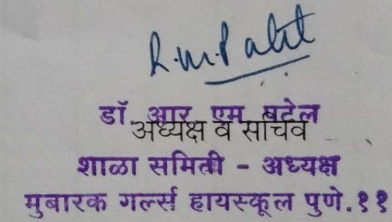 R.M. Patel
डॉ आर एम पटेल
अध्यक्ष व सचिव
शाळा समिती - अध्यक्ष
मुबारक गर्ल्स हायस्कूल पुणे.११